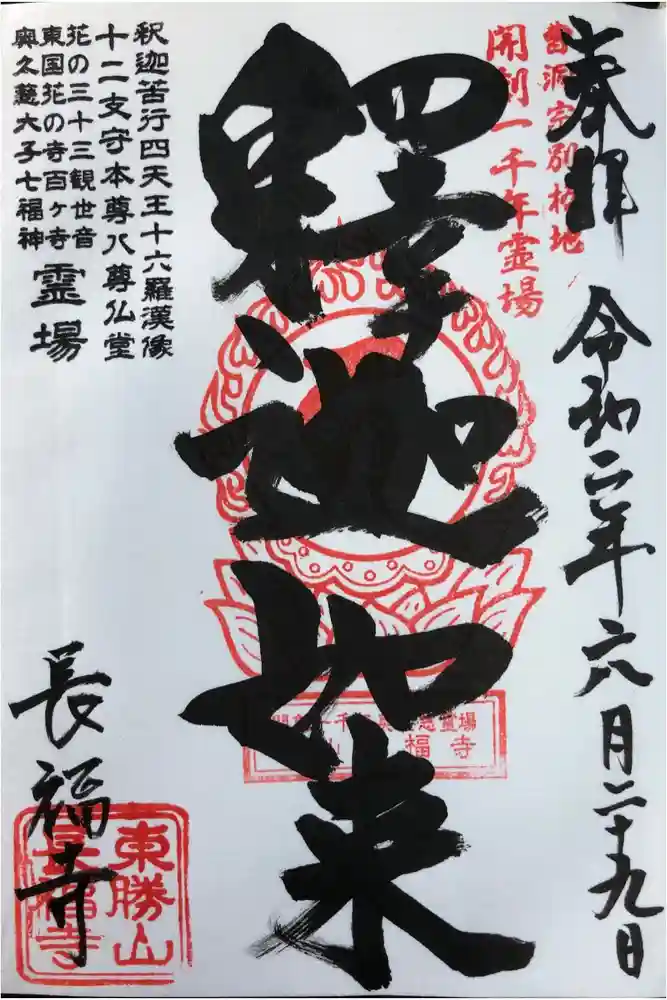 奉拝 令和二年六月二十九日
曹洞宗別格地
開創一千年霊場
釋迦如来
釈迦苦行四天王十六羅漢像
十二支守本尊八尊仏堂
花の三十三観世音
東国花の寺百ヶ寺
奥久慈大子七福神
霊場
長福寺
東勝山
長福寺